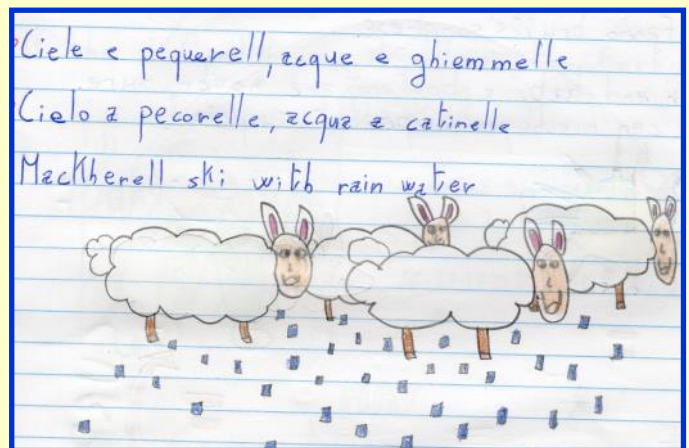 Ciele e pequerell, acque e ghiemmelle
Cielo a pecorelle, acqua a catinelle
Mackherell ski with rain water